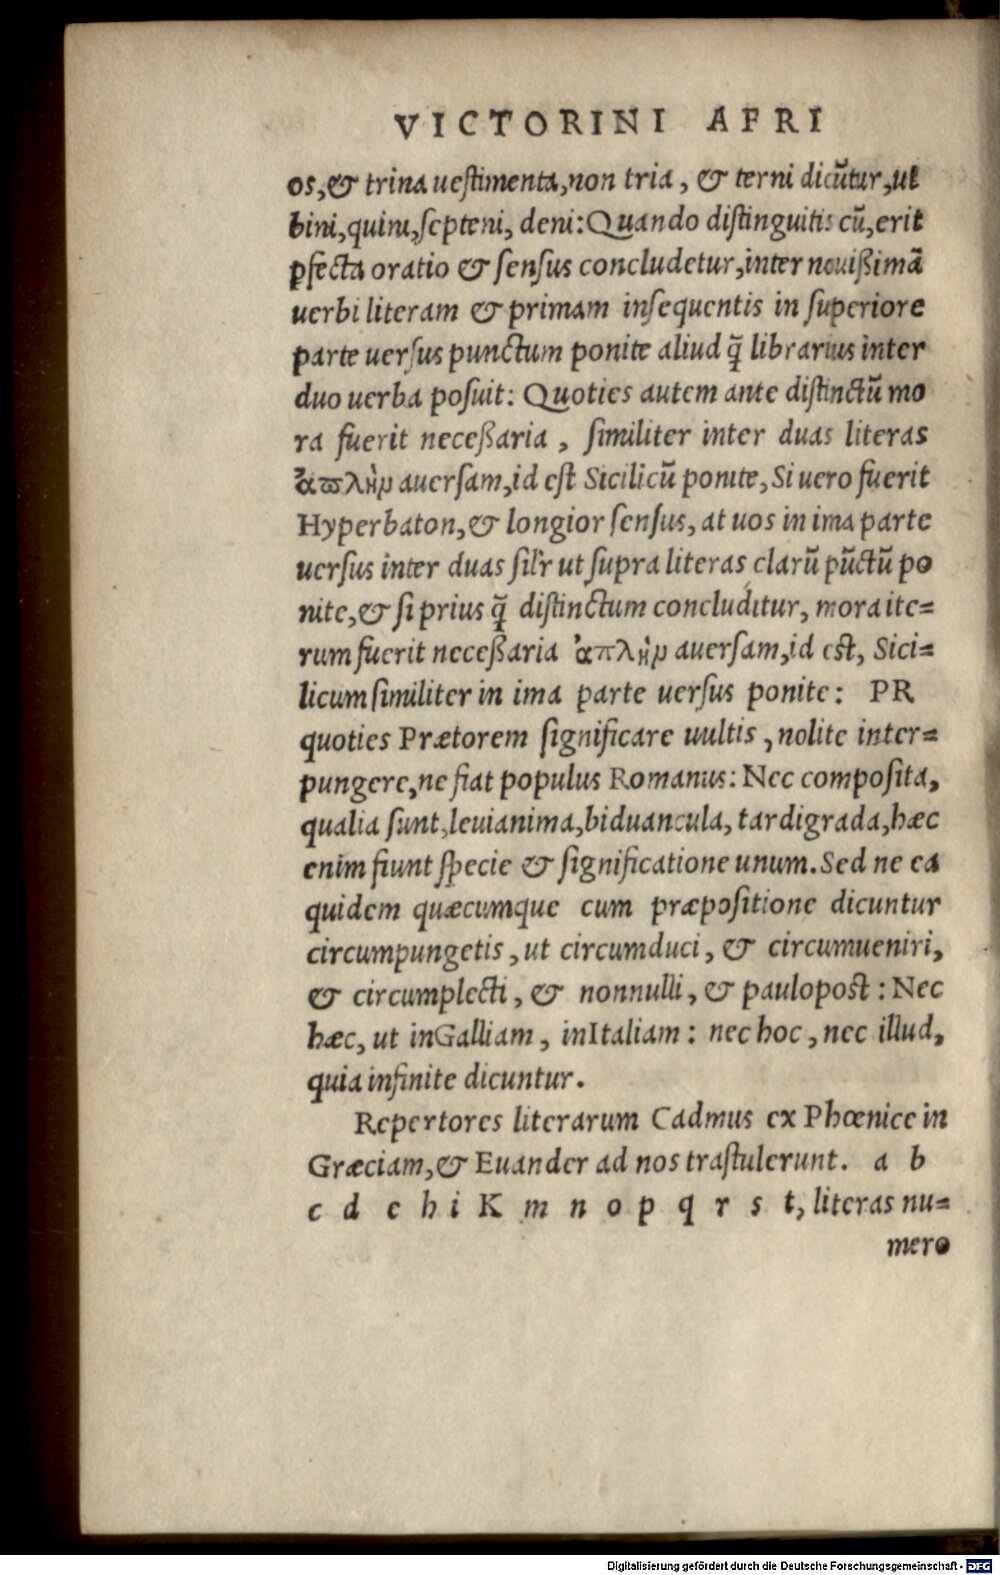 VICTORINI AFRI
os,& trina uestimenta,non tria, & terni dicũtur,ut
bini,quini,septeni, deni: Quando distinguitis cũ,erit
ꝑfecta oratio & sensus concludetur,inter nouißimã
uerbi literam & primam insequentis in superiore
parte uersus punctum ponite aliud q̃ librarius inter
duo uerba posuit: Quoties autem ante distinctũ mo
ra fuerit neceßaria, similiter inter duas literas
ἁϖλῆν auersam,id est Sicilicũ ponite, Si uero fuerit
Hyperbaton,& longior sensus, at uos in ima parte
uersus inter duas sil'r ut supra literas clarũ pũctũ po
nite,& si prius q̃ distinctum concluditur, mora ite=
rum fuerit neceßaria ἁπλῆν auersam,id est, Sici=
licum similiter in ima parte uersus ponite: PR
quoties Prætorem significare uultis, nolite inter=
pungere,ne fiat populus Romanus: Nec composita,
qualia sunt,leuianima,biduancula, tardigrada,hæc
enim fiunt specie & significatione unum. Sed ne ea
quidem quæcumque cum præpositione dicuntur
circumpungetis, ut circumduci, & circumueniri,
& circumplecti, & nonnulli, & paulopost: Nec
hæc, ut inGalliam, inItaliam: nec hoc, nec illud,
quia infinite dicuntur.
Repertores literarum Cadmus ex Phœnice in
Græciam,& Euander ad nos trastulerunt. a b
c d e h i K m n o p q r s t, literas nu=
mero
Digitalisierung gefördert durch die Deutsche Forschungsgemeinschaft - DFG